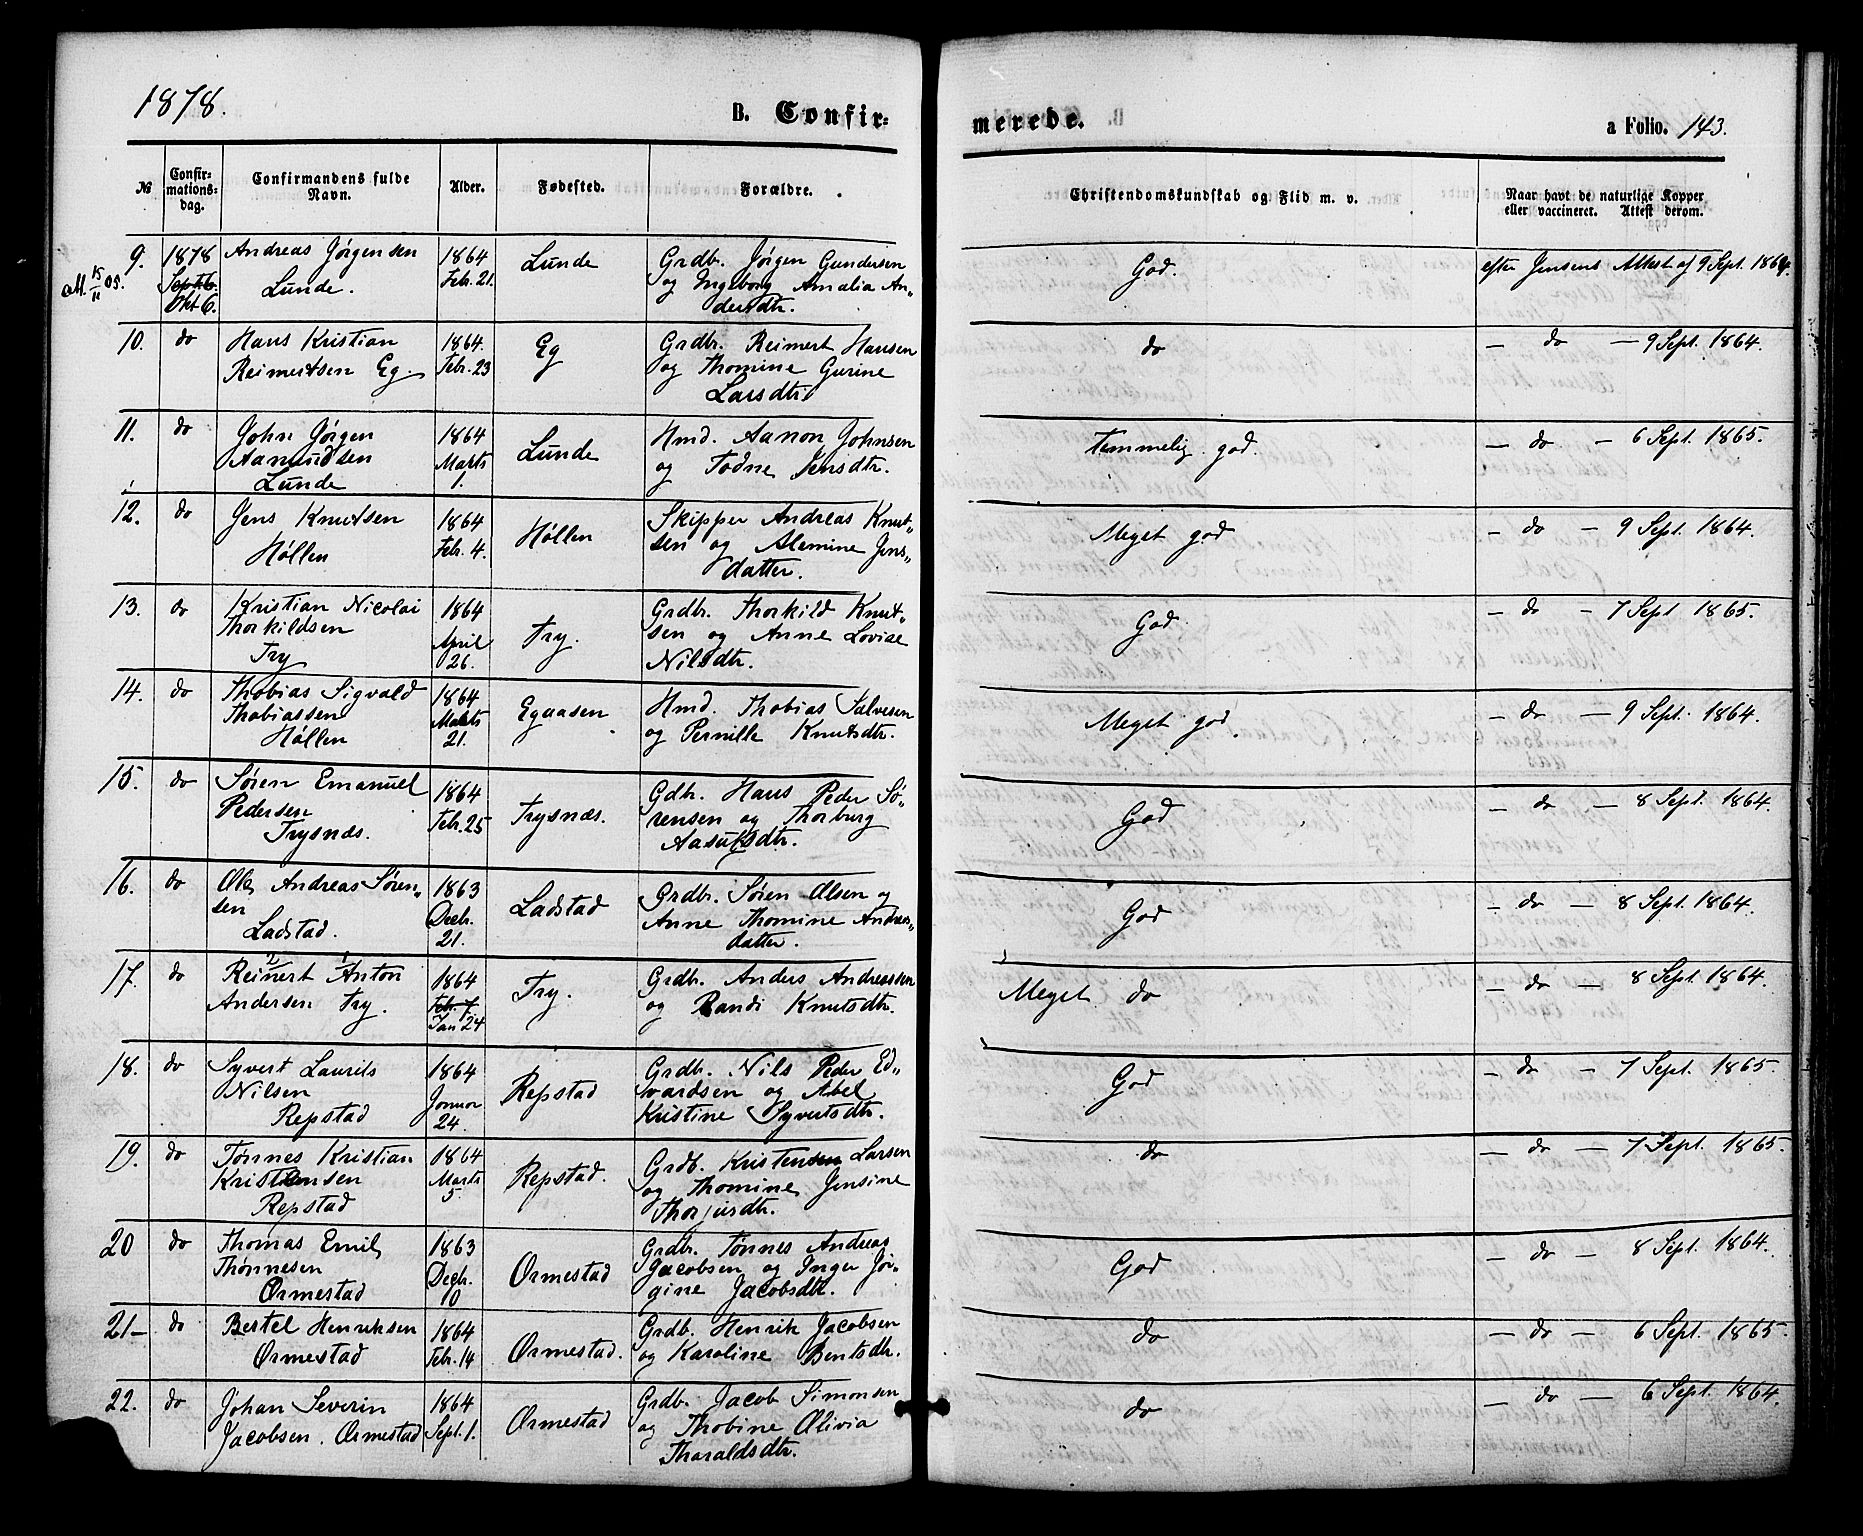 1878.
B. Confir=
merede.
a Folio. 143.
№
Confir-
mations-
dag.
Confirmandens fulde
Navn.
Alder.
Fødested.
Forældre.
Christendomskundskab og Flid m. v.
Naar havt de naturlige Kopper
eller vaccineret. Attest derom.
att. 15/11 05.
9.
1878
Septb.
Okt 6.
Andreas Jørgensen
Lunde.
1864
Febr. 21.
Lunde
Grdbr. Jørgen Gundersen
og Ingeborg Amalia An-
dersdtr.
God.
efter Jensens Attest af 9 Sept. 1864.
10.
do
Hans Kristian
Reimertsen Eg.
1864.
Febr. 23
Eg
Grdbr. Reimert Hansen
og Thomine Gurine
Larsdtr.
do
— do — 9 Sept. 1864.
11.
do
John Jørgen
Aanundsen
Lunde
1864
Marts
1.
Lunde
Hmd. Aanon Johnsen
og Todne Jensdtr.
Temmelig god.
— do — 6 Sept. 1865.
12.
do
Jens Knutsen
Høllen
1864
Febr. 4.
Høllen
Skipper Andreas Knut„
sen og Alemine Jens„
datter.
Meget god
— do — 9 Sept. 1864.
13.
do
Kristian Nicolai
Thorkildsen
Try
1864
April
26.
Try.
Grdbr. Thorkild Knut„
sen og Anne Lovise
Nilsdtr.
God.
— do — 7 Sept. 1865.
14.
do
Thobias Sigvald
Thobiassen
Høllen
1864
Marts
21.
Egaasen
Hmd. Thobias Salvesen
og Pernille Knutsdtr.
Meget god
— do — 9 Sept. 1864.
15.
do
Søren Emanuel
Pedersen
Trysnæs.
1864
Febr. 25
Trysnæs.
Gdbr. Hans Peder Sø„
rensen og Thorburg
Aasulfsdtr.
God
— do — 8 Sept. 1864.
16.
do
Ole Andreas Søren„
sen
Ladstad.
1863
Decbr.
21.
Ladstad
Grdbr. Søren Olsen og
Anne Thomine Andreas„
datter.
God
— do — 8 Sept. 1864.
17.
do
Reinert Anton
Andersen Try.
1864
Febr. 7.
Jan 24
Try.
Grdbr. Anders Andreassen
og Randi Knutsdtr.
Meget do
— do — 8 Sept. 1864.
18.
do
Syvert Laurits
Nilsen
Repstad
1864
Januar
24.
Repstad
Grdbr. Nils Peder Ed„
vardsen og Abel
Kristine Syvertsdtr.
God
— do — 7 Sept. 1865.
19.
do
Tønnes Kristian
Kristensen
Repstad
1864
Marts
5
Repstad.
Grdb. Kristensen Larsen
og Thomine Jensine
Thorjusdtr.
do
— do — 7 Sept. 1865.
20
do
Thomas Emil
Thønnesen
Ormestad
1863
Decbr.
10
Ormestad
Grdbr. Tønnes Andreas
Jacobsen og Inger Jør-
gine Jacobsdtr.
God
— do — 8 Sept. 1864.
21—
do
Bertel Henriksen
Ormestad
1864
Febr. 14
Ormestad.
Grdb. Henrik Jacobsen
og Karoline Bentsdtr.
do
— do — 6 Sept. 1865.
22.
do
Johan Severin
Jacobsen. Ormestad
1864
Sept. 1.
Ormestad
Grdbr. Jacob Simonsen
og Thobine Olivia
Tharaldsdtr.
do
— do — 6 Sept. 1864.